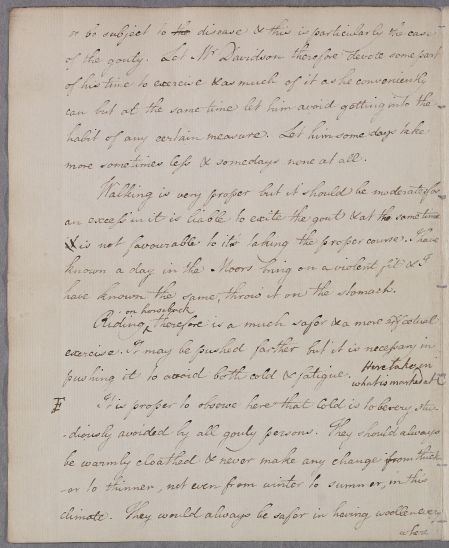 or be subject to the disease & this is particularly the case
of the gouty. Let Mr Davidson therefore devote some part
of his time to exercise & as much of it as he conveniently
can but at the same time let him avoid getting into the
habit of any certain measure. Let him some days take
more sometimes less & somedays none at all.
Walking is very proper but it should be moderate for
an excess in it is liable to excite the gout & at the same time
is not favourable to its taking the proper course. I have
known a day in the Moors bring on a violent fit & I
have known the same, throw it on the stomach.
on horseback
Riding therefore is a much safer & a more effectual
exercise. It may be pushed farther but it is necessary in
pushing it to avoid both cold & fatigue. Here take in
what is marked at
It is proper to observe here that cold is to be very stu
-diously avoided by all gouty persons. They should always
be warmly cloathed & never make any change from thick
-er to thinner, not even from winter to summer, in this
climate. They would always be safer in having woollen every
where